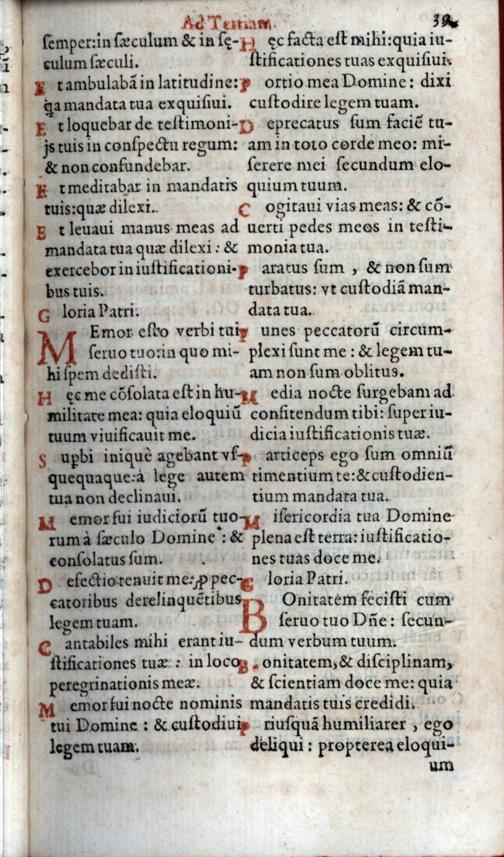 Ad Tertiam.
39
semper: in sæculum & in sę-
culum sæculi.
E t ambulabā in latitudine:
q̄a mandata tua exquisiui.
E t loquebar de testimoni-
js tuis in conspectu regum:
& non confundebar.
E t meditabar in mandatis
tuis: quæ dilexi.
E t leuaui manus meas ad
mandata tua quæ dilexi: &
exercebor in iustificationi-
bus tuis.
G loria Patri.
M Emor esto verbi tui
seruo tuo: in quo mi-
hi spem dedisti.
H ęc me cōsolata est in hu-
militate mea: quia eloquiū
tuum viuificauit me.
S upbi iniquè agebant vs-
quequaque: à lege autem
tua non declinaui.
M emor fui iudiciorū tuo-
rum à sæculo Domine: &
consolatus sum.
D efectio tenuit me: ꝓ pec-
catoribus derelinquētibus
legem tuam.
C antabiles mihi erant iu-
stificationes tuæ: in loco
peregrinationis meæ.
M emor fui nocte nominis
tui Domine: & custodiui
legem tuam.
H ęc facta est mihi: quia iu-
stificationes tuas exquisiui.
P ortio mea Domine: dixi
custodire legem tuam.
D eprecatus sum faciē tu-
am in toto corde meo: mi-
serere mei secundum elo-
quium tuum.
C ogitaui vias meas: & cō-
uerti pedes meos in testi-
monia tua.
P aratus sum, & non sum
turbatus: vt custodiā man-
data tua.
F unes peccatorū circum-
plexi sunt me: & legem tu-
am non sum oblitus.
M edia nocte surgebam ad
confitendum tibi: super iu-
dicia iustificationis tuæ.
P articeps ego sum omniū
timentium te: & custodien-
tium mandata tua.
M isericordia tua Domine
plena est terra: iustificatio-
nes tuas doce me.
G loria Patri.
B Onitatem fecisti cum
seruo tuo Dñe: secun-
dum verbum tuum.
B onitatem, & disciplinam,
& scientiam doce me: quia
mandatis tuis credidi.
P riusquā humiliarer, ego
deliqui: propterea eloqui-
um